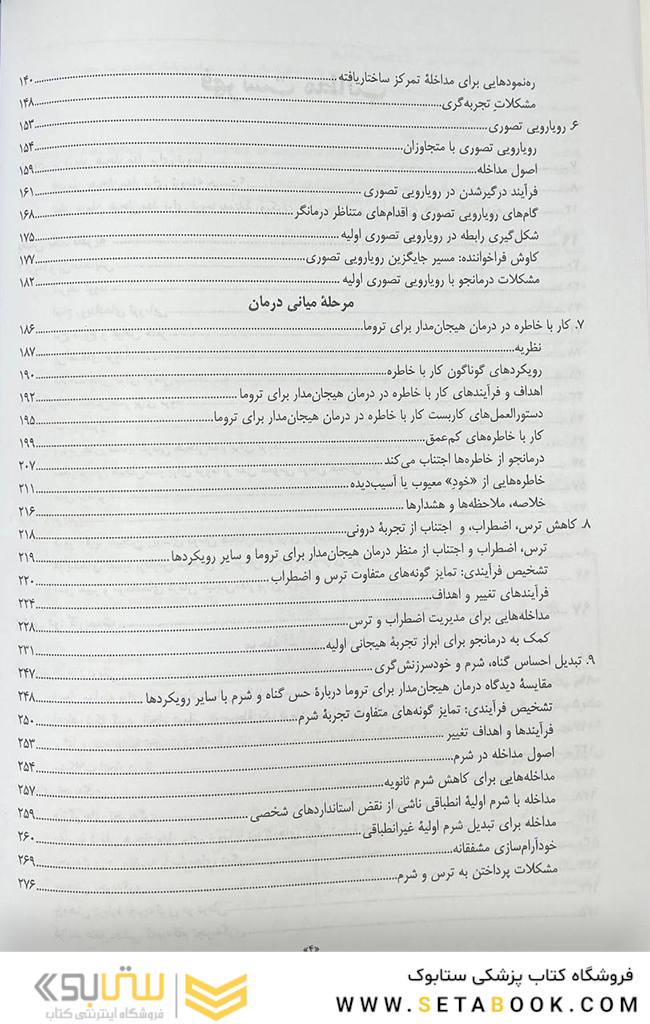 ره‌نمودهایی برای مداخلهٔ تمرکز ساختاریافته ۱۴۰
مشکلات تجربه‌گری ۱۴۸
۶. رویارویی تصوری ۱۵۳
رویارویی تصوری با متجاوزان ۱۵۴
اصول مداخله ۱۵۹
فرآیند درگیرشدن در رویارویی تصوری ۱۶۱
گام‌های رویارویی تصوری و اقدام‌های متناظر درمانگر ۱۶۸
شکل‌گیری رابطه در رویارویی تصوری اولیه ۱۷۵
کاوش فراخواننده: مسیر جایگزین رویارویی تصوری ۱۷۷
مشکلات درمانجو با رویارویی تصوری اولیه ۱۸۲
مرحلهٔ میانی درمان
۷. کار با خاطره در درمان هیجان‌مدار برای تروما ۱۸۶
نظریه ۱۸۷
رویکردهای گوناگون کار با خاطره ۱۹۰
اهداف و فرآیندهای کار با خاطره در درمان هیجان‌مدار برای تروما ۱۹۲
دستورالعمل‌های کاربست کار با خاطره در درمان هیجان‌مدار برای تروما ۱۹۵
کار با خاطره‌های کم‌عمق ۱۹۹
درمانجو از خاطره‌ها اجتناب می‌کند ۲۰۷
خاطره‌هایی از «خودِ» معیوب یا آسیب‌دیده ۲۱۱
خلاصه، ملاحظه‌ها و هشدارها ۲۱۶
۸. کاهش ترس، اضطراب، و اجتناب از تجربهٔ درونی ۲۱۸
ترس، اضطراب و اجتناب از منظر درمان هیجان‌مدار برای تروما و سایر رویکردها ۲۱۹
تشخیص فرآیندی: تمایز گونه‌های متفاوت ترس و اضطراب ۲۲۰
فرآیندهای تغییر و اهداف ۲۲۴
مداخله‌هایی برای مدیریت اضطراب و ترس ۲۲۸
کمک به درمانجو برای ابراز تجربهٔ هیجانی اولیه ۲۳۱
۹. تبدیل احساس گناه، شرم و خودسرزنش‌گری ۲۴۷
مقایسهٔ دیدگاه درمان هیجان‌مدار برای تروما دربارهٔ حس گناه و شرم با سایر رویکردها ۲۴۸
تشخیص فرآیندی: تمایز گونه‌های متفاوت تجربهٔ شرم ۲۵۰
فرآیندها و اهداف تغییر ۲۵۳
اصول مداخله در شرم ۲۵۴
مداخله‌هایی برای کاهش شرم ثانویه ۲۵۷
مداخله با شرم اولیهٔ انطباقی ناشی از نقض استانداردهای شخصی ۲۵۹
مداخله برای تبدیل شرم اولیهٔ غیرانطباقی ۲۶۰
خودآرام‌سازی مشفقانه ۲۶۹
مشکلات پرداختن به ترس و شرم ۲۷۶
«۴»
فروشگاه کتاب پزشکی ستابوک
WWW.SETABOOK.COM
ستابوک
فروشگاه اینترنتی کتاب